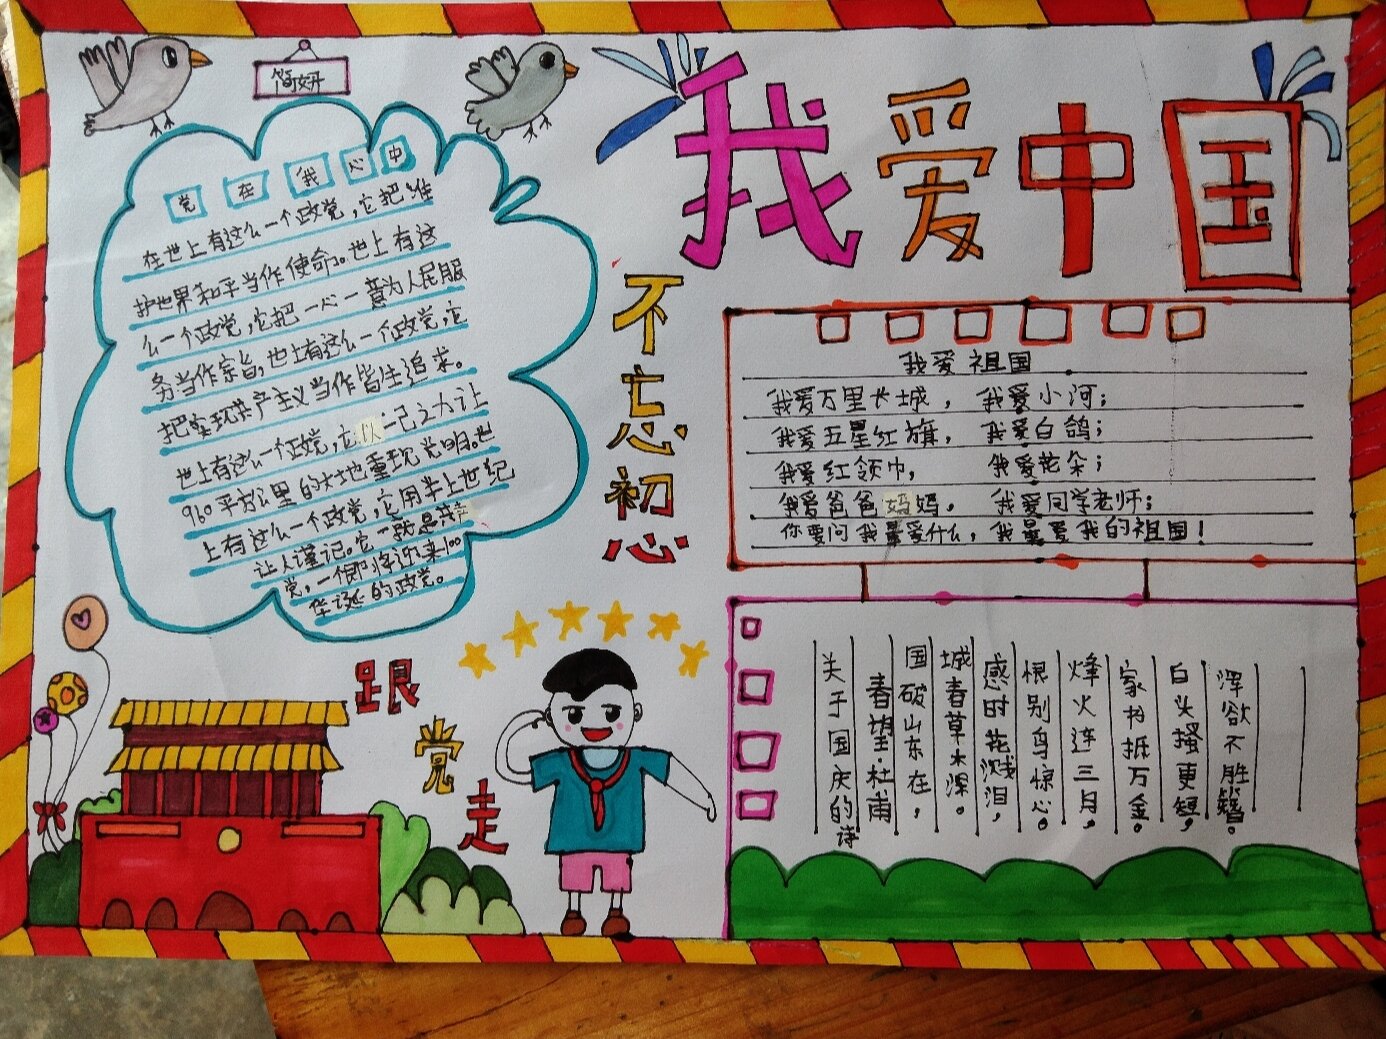 简妍
我爱中国
党在我心中
在世上有这么一个政党,它把维
护世界和平当作使命。世上有这
么一个政党,它把一心一意为人民服
务当作宗旨,世上有这么一个政党,它
把实现共产主义当作毕生追求。
世上有这么一个政党,它以一己之力让
960平方公里的土地重现光明。世
上有这么一个政党,它用半上世纪
让人谨记。它一致是共产
党,一个即将迎来100
华诞的政党。
不忘初心
跟党走
我爱祖国
我爱万里长城, 我爱小河;
我爱五星红旗, 我爱白鸽;
我爱红领巾, 我爱花朵;
我爱爸爸妈妈。 我爱同学老师;
你要问我最爱什么,我最爱我的祖国!
关于国庆的诗
春望·杜甫
国破山东在,
城春草木深。
感时花溅泪,
恨别鸟惊心。
烽火连三月,
家书抵万金。
白头搔更短,
浑欲不胜簪。